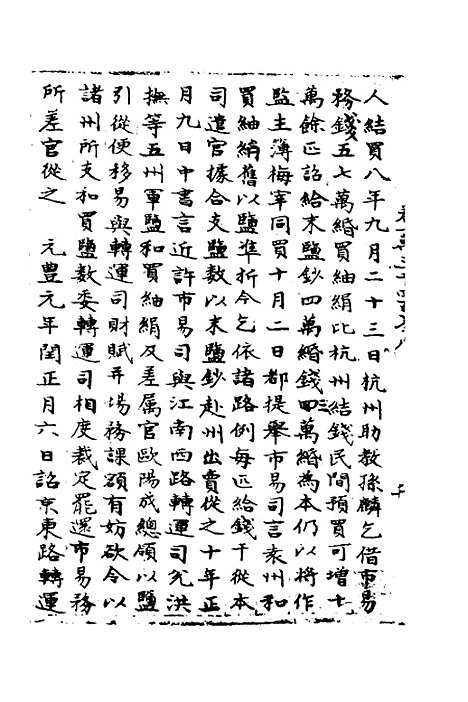 人結買八年九月二十三日杭州助教孫麟乞借市易
務錢五七萬緡買紬絹比杭州結錢民間預買可增十
萬餘匹詔給末鹽鈔四萬緡錢四萬緡為本仍以將作
監主簿梅宰同買十月二日都提舉市易司言袁州和
買紬絹舊以鹽準折今乞依諸路例每匹給錢千從本
司遣官據合支鹽數以末鹽鈔赴州出賣從之十年正
月九日中書言近許市易司與江南西路轉運司允洪
撫等五州軍鹽和買紬絹及差属官歐陽成總領以鹽
引從便移易與轉運司財賦并場務課額有妨欲令以
諸州所支和買鹽數委轉運司相度裁定罷還市易務
所差官從之 元豐元年閏正月六日詔京東路轉運